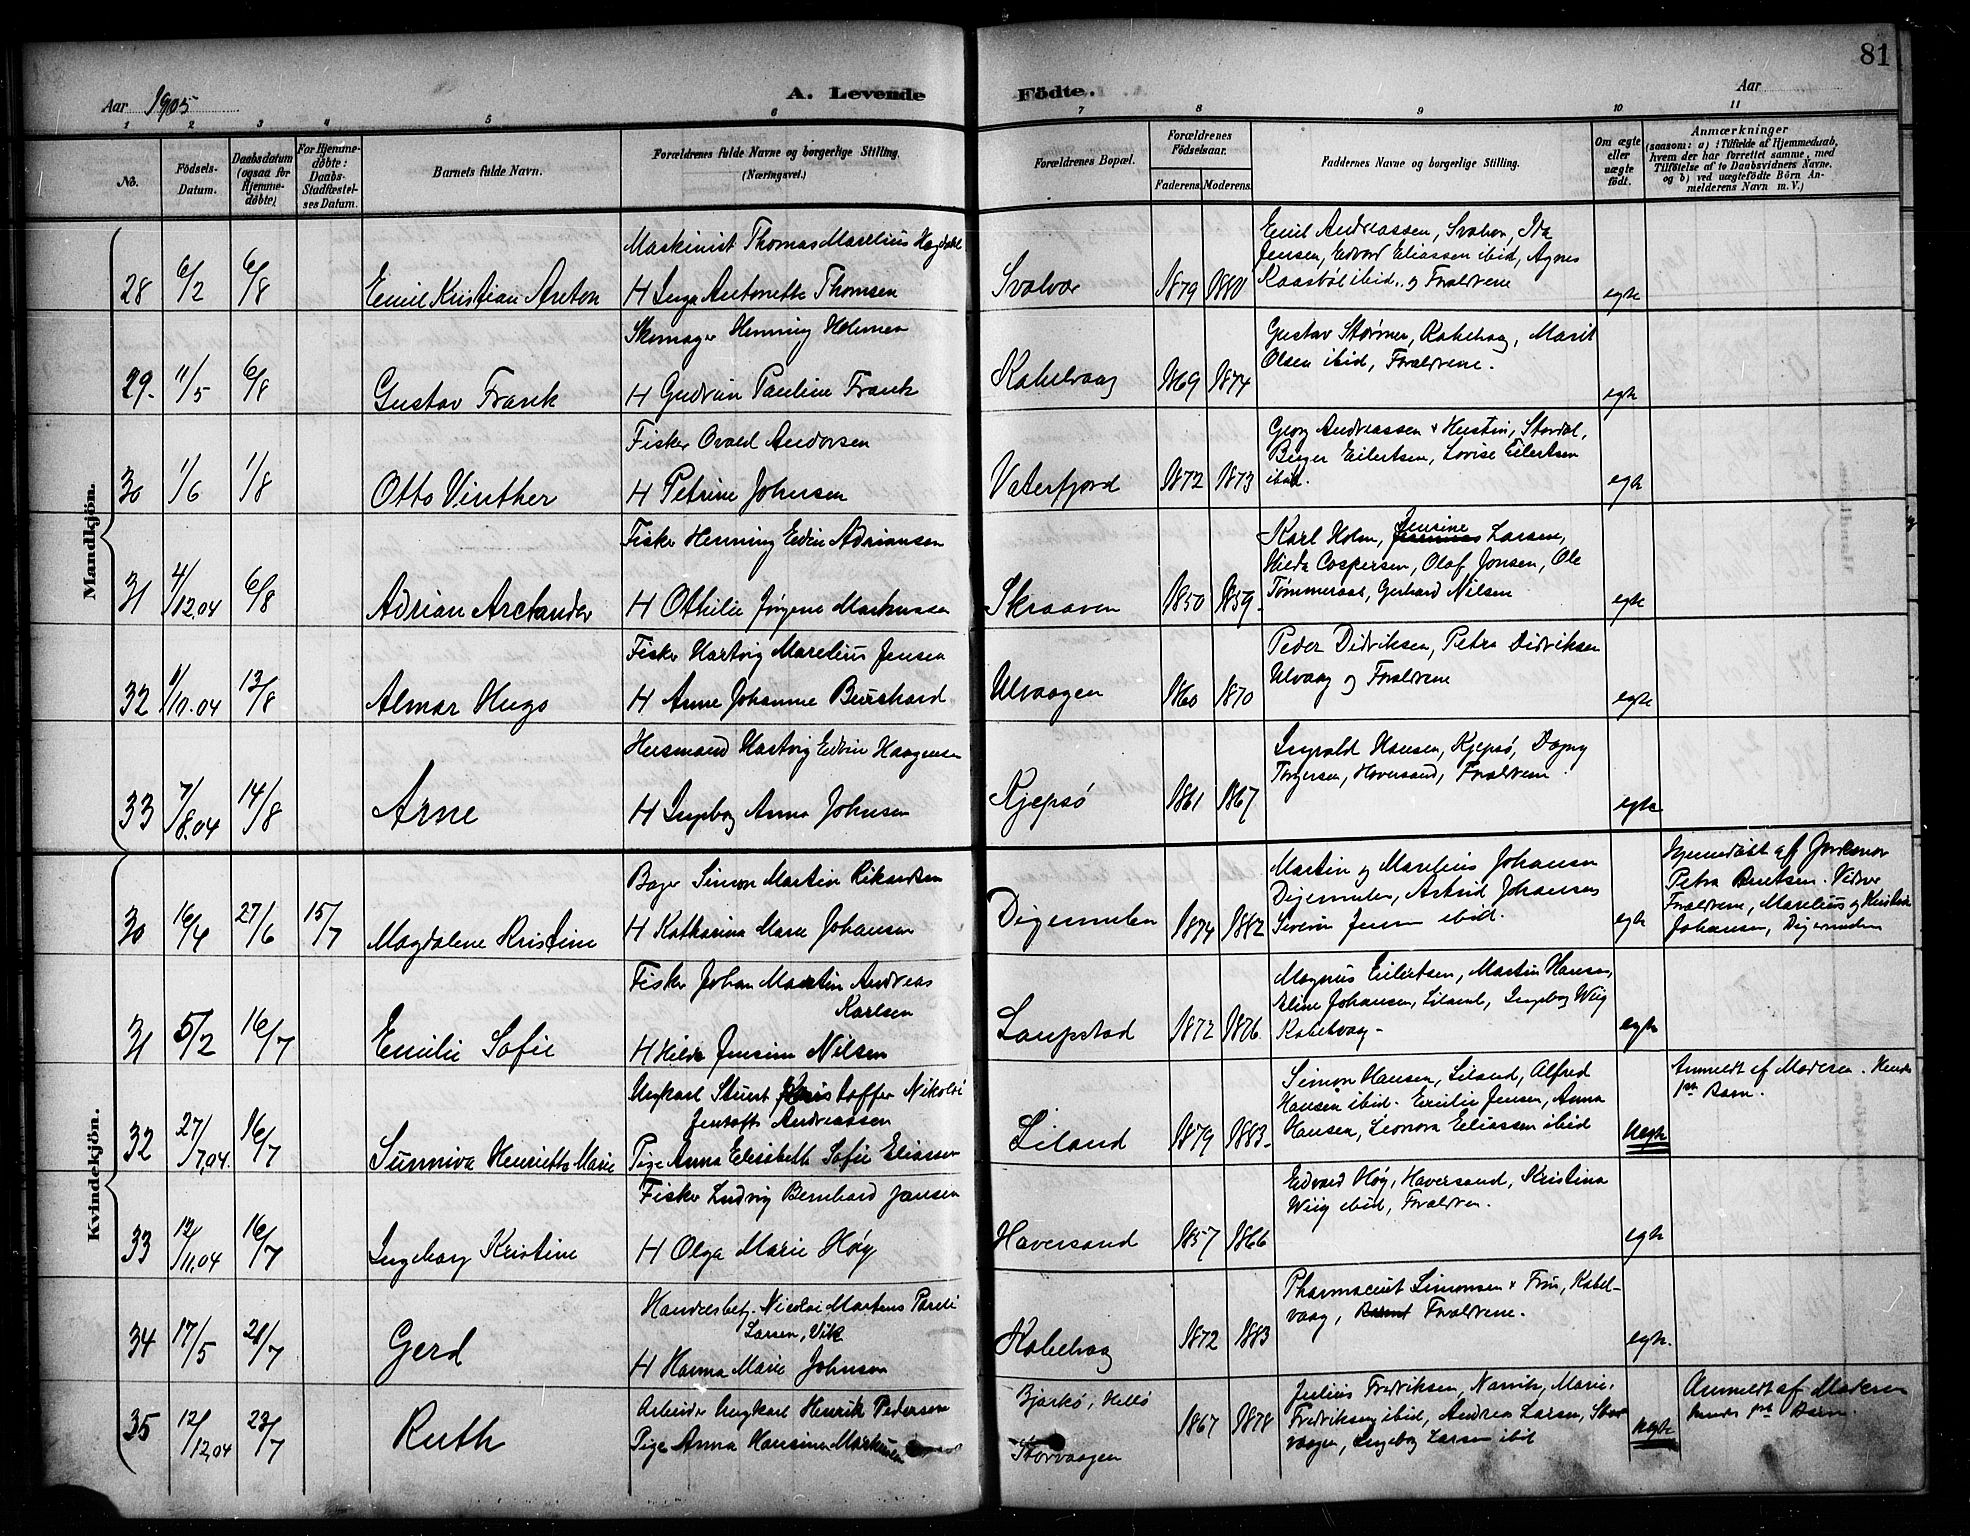 81
Aar 1905
A. Levende Födte.
Aar
1 2 3 4 5 6 7 8 9 10 11
No.
Födsels-Datum.
Daabsdatum (ogsaa for Hjemmedøbte)
For Hjemmedøbte: Daabs-Stadfæstelses Datum.
Barnets fulde Navn.
Forældrenes fulde Navne og borgerlige Stilling. (Næringsvei.)
Forældrenes Bopæl.
Forældrenes Födselsaar.
Faderens. Moderens.
Faddernes Navne og borgerlige Stilling.
Om ægte eller uægte födt.
Anmærkninger
(saasom: a) i Tilfælde af Hjemmedaab,
hvem der har forrettet samme, med
Tilföielse af to Daabsvidners Navne.
og b) ved uægtefödte Börn An-
melderens Navn m. V.)
Mandkjön.
Maskinist Thomas Marelius
28 6/2 6/8 Emil Kristian Anton H Inga Antonette Thomsen Svolvær 1879 1880
Emil Andreassen, Svolvær, Ida
Jensen, Edvard Eliassen ibid, Agnes
Kaasbøl ibid. og Forældrene
egte
Skomager Henning Holmen
29. 11/5 6/8 Gustav Frank H Gudrun Pauline Frank Kabelvaag 1869 1874
Gustav Størmer, Kabelvaag, Marit
Olsen ibid, Forældrene.
egte
Fisker Osvald Andorsen
30 1/6 1/8 Otto Vinther H Petrine Johnsen Vaterfjord 1872 1873
Georg Andreassen + Hustru, Stordal,
Birger Eilertsen, Lovise Eilertsen
ibid.
egte
Fisker Henning Edin Adriansen
31 4/12.04 6/8 Adrian Arctander H Othilie Jørgine Markussen Skraaven 1850 1859
Karl Holm, Jensine Larsen,
Hilda Caspersen, Olaf Jonsen, Ole
Tømmeraas, Gerhard Nilsen
egte
Fisker Hartvig Marelius Jensen
32 11/11.04 13/8 Almar Hugo H Anne Johanne Burchard Ulvaagen 1860 1870
Peder Didriksen, Petra Didriksen
Ulvaag og Forældrene
egte
Husmand Hartvig Edvin Haagensen
33 7/8.04 14/8 Arne H Ingeborg Anna Johnsen Kjepsø 1861 1867
Ingvald Hansen, Kjepsø, Dagny
Torgersen, Haversand, Forældrene.
egte
Kvindekjön.
Bager Simon Martin Rikardsen
30 16/4 27/6 15/7 Magdalene Kristine H Katharina Marie Johansen Digermulen 1874 1882
Martin og Marelius Johansen
Digermulen, Astrid Johansen
Severin Jensen ibid.
egte
Hjemmedøbt af Jordemor
Petra Berntsen. Vidner
Forældrene, Marelius og Kristine
Johansen, Digermulen
Fisker Johan Martin Andreas
Karlsen
31 5/2 16/7 Emilie Sofie H Hilda Jensine Nilsen Laupstad 1872 1876
Magnus Eilertsen, Martin Hansen,
Eline Johansen, Liland, Ingeborg Wiig
Kabelvaag -
egte
Ungkarl Stuert Kristoffer Nikolai
Jentoft Andreassen
32 27/7.04. 16/7 Sunniva Henriette Marie Pige Anna Elisabeth Sofie Eliassen Liland 1879 1883
Simon Hansen, Liland, Alfred
Hansen ibid. Emilie Jensen, Anna
Hansen, Leonora Eliassen ibid
uegte
Anmeldt af Moderen. Hendes
1ste Barn.
Fisker Ludvig Bernhard Jansen
33 12/11.04 16/7 Ingeborg Kristine H Olga Marie Høy Haversand 1857 1866
Edvard Høy, Haversand, Kristina
Wiig ibid, Forældren.
egte
Handelsbetj. Nicolai Martens Pareli
Larsen, Vik
34 17/5 21/7 Gerd H Hanna Marie Johnson Kabelvaag 1872 1883
Pharmaceut Simonsen + Frue, Kabel-
vaag, Forældrene.
egte.
Arbeider Ungkarl Henrik Pedersen
35 12/12,04 23/7 Ruth Pige Anna Hansine Markussen
Bjarkø, Hellø
Storvaagen
1867 1878
Julius Fredriksen, Narvik, Marie
Fredriksen ibid, Andrea Larsen, Stor
vaagen, Ingeborg Larsen ibid
uegte
Anmeldt af Moderen
Hendes 1ste Barn.